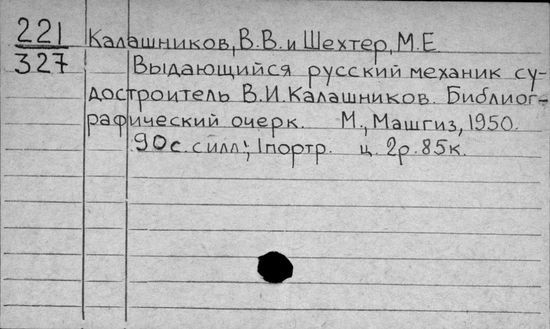 221 Калашников, В.В. и Шехтер, М.Е
327 Выдающийся русский механик су-
достроитель В.И.Калашников. Библиог-
рафический очерк. М., Машгиз, 1950.
90с. с илл; 1портр. ц. 2р. 85к.